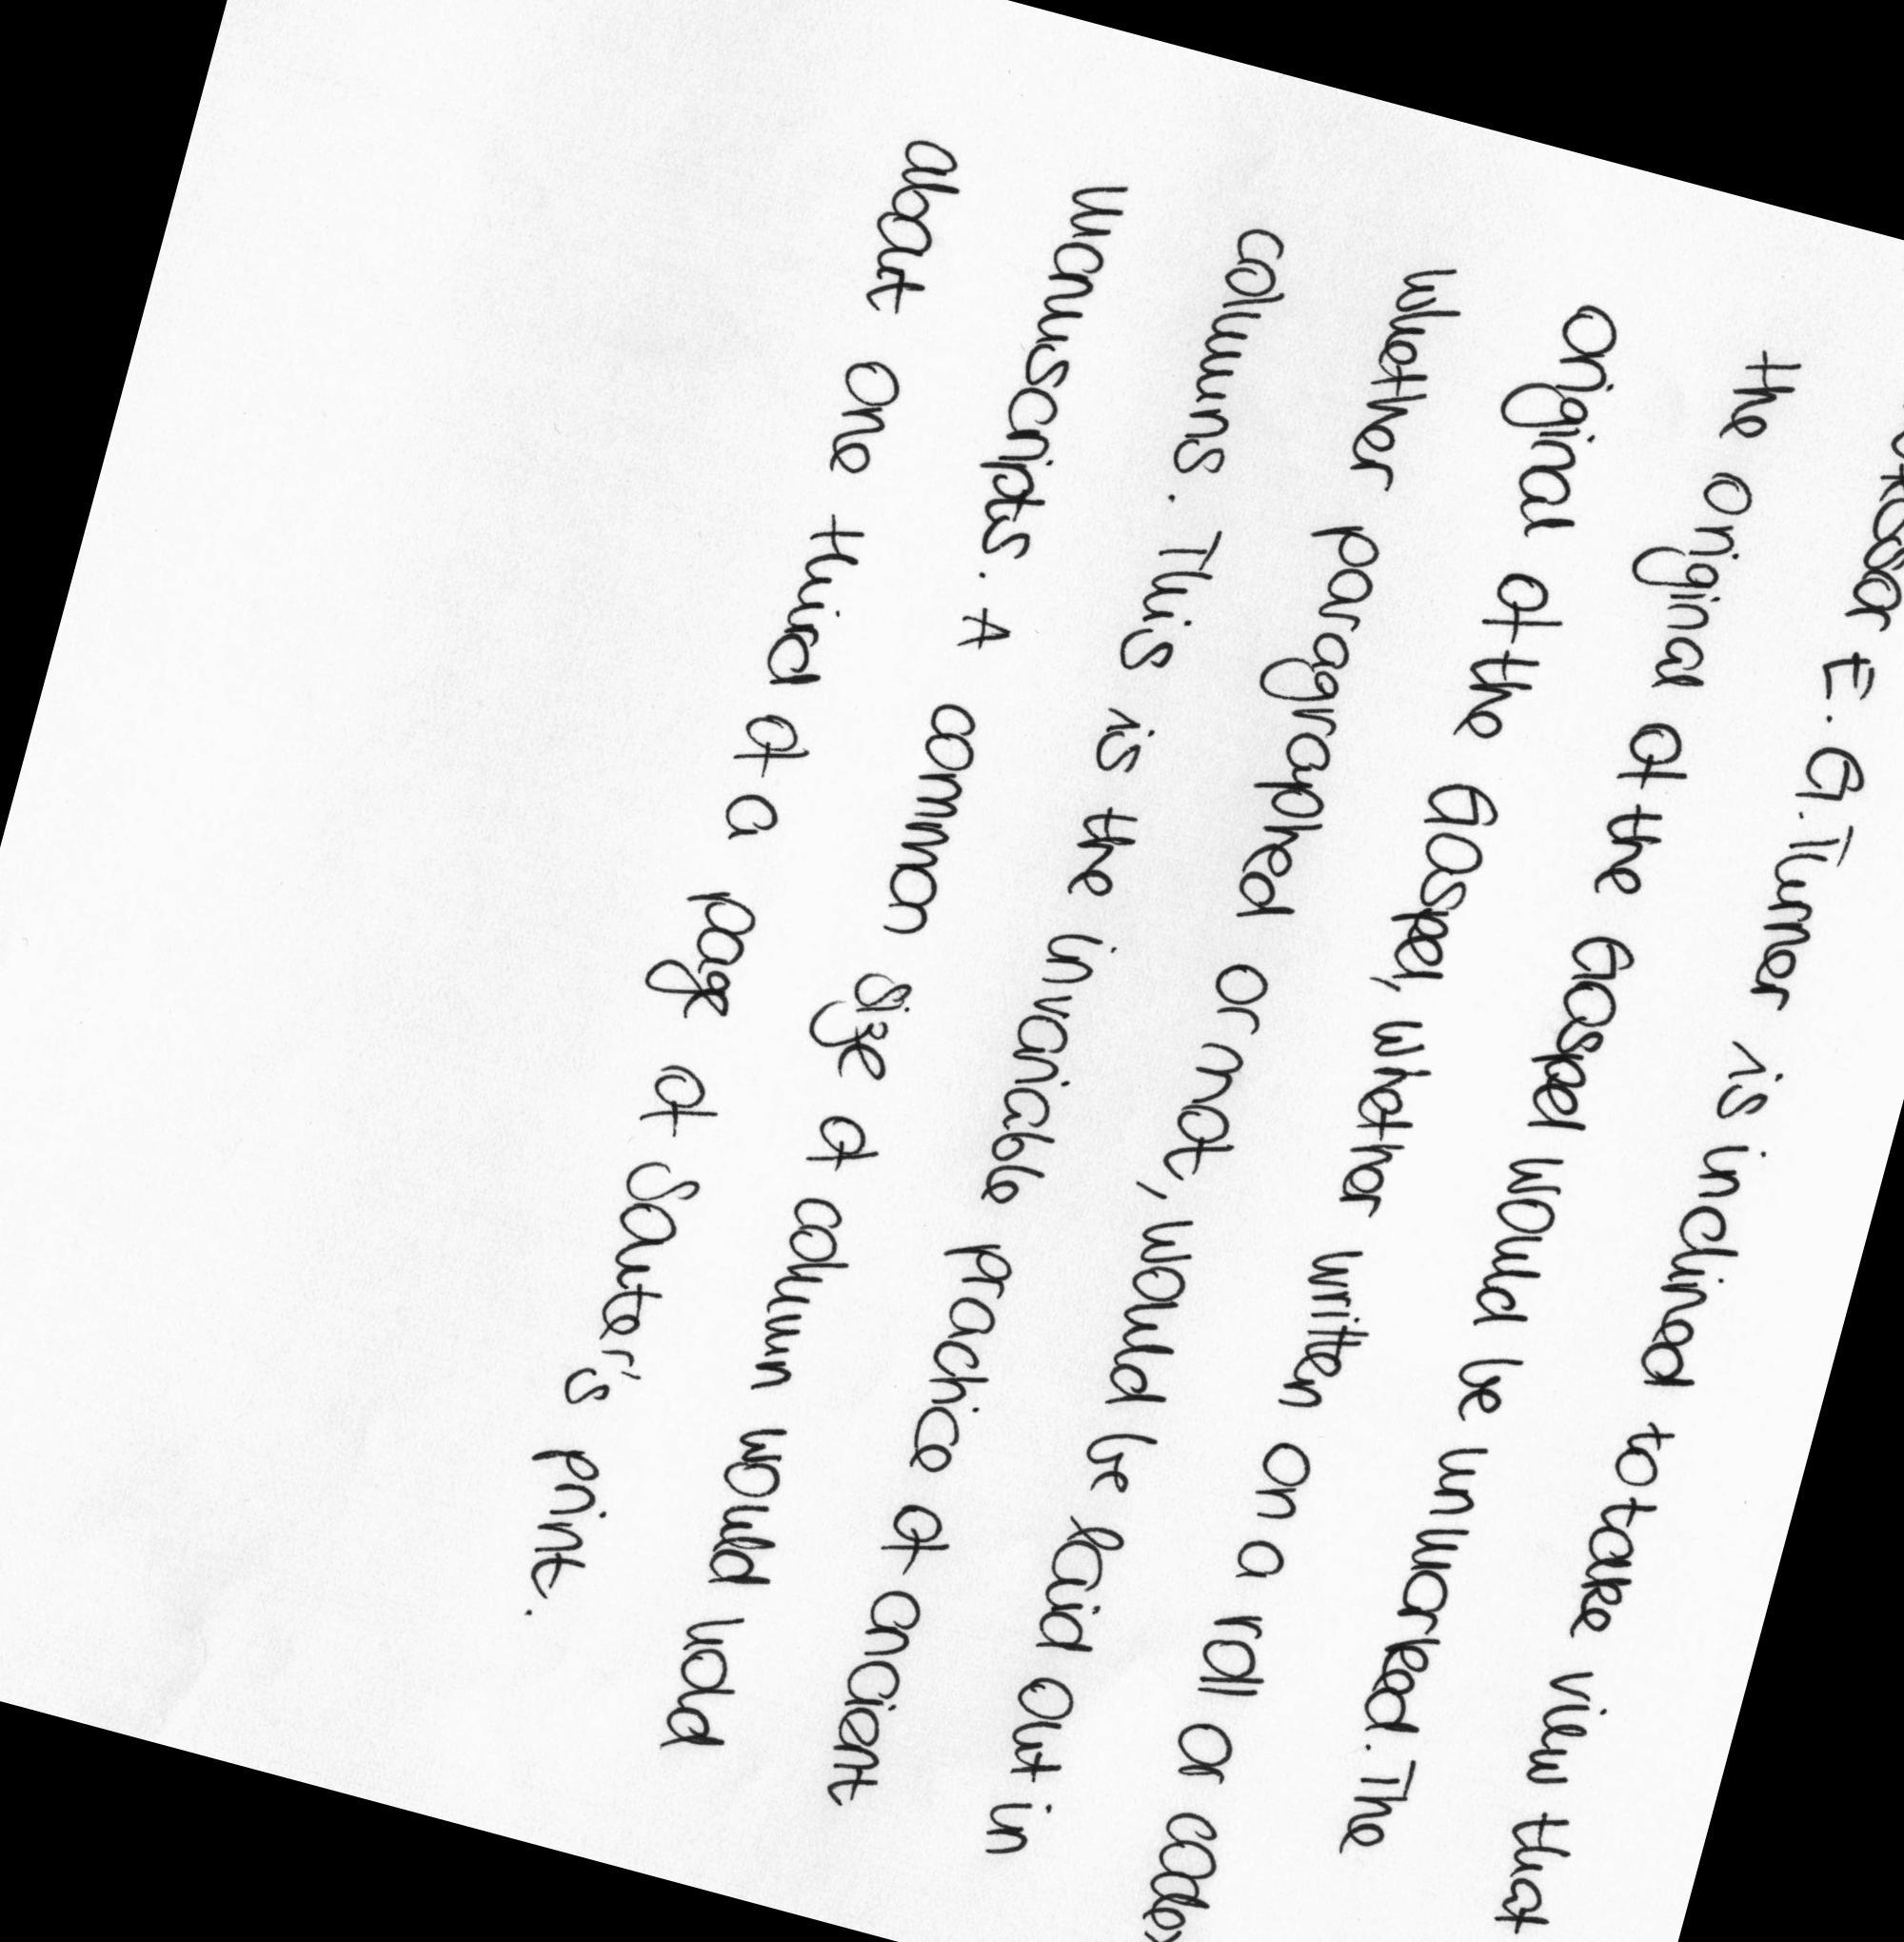 E. G. Turner is inclined to take view that
the original of the Gospel would be unmarked. The
original of the Gospel, whether written on a roll or codex
whether paragraphed or not, would be laid out in
columns. This is the invariable practice of ancient
manuscripts. A common size of column would hold
about one third of a page of Souter's print.